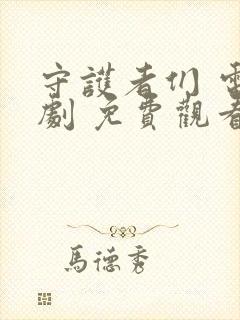 守護者们 電
劇 免費觀看
馬德秀